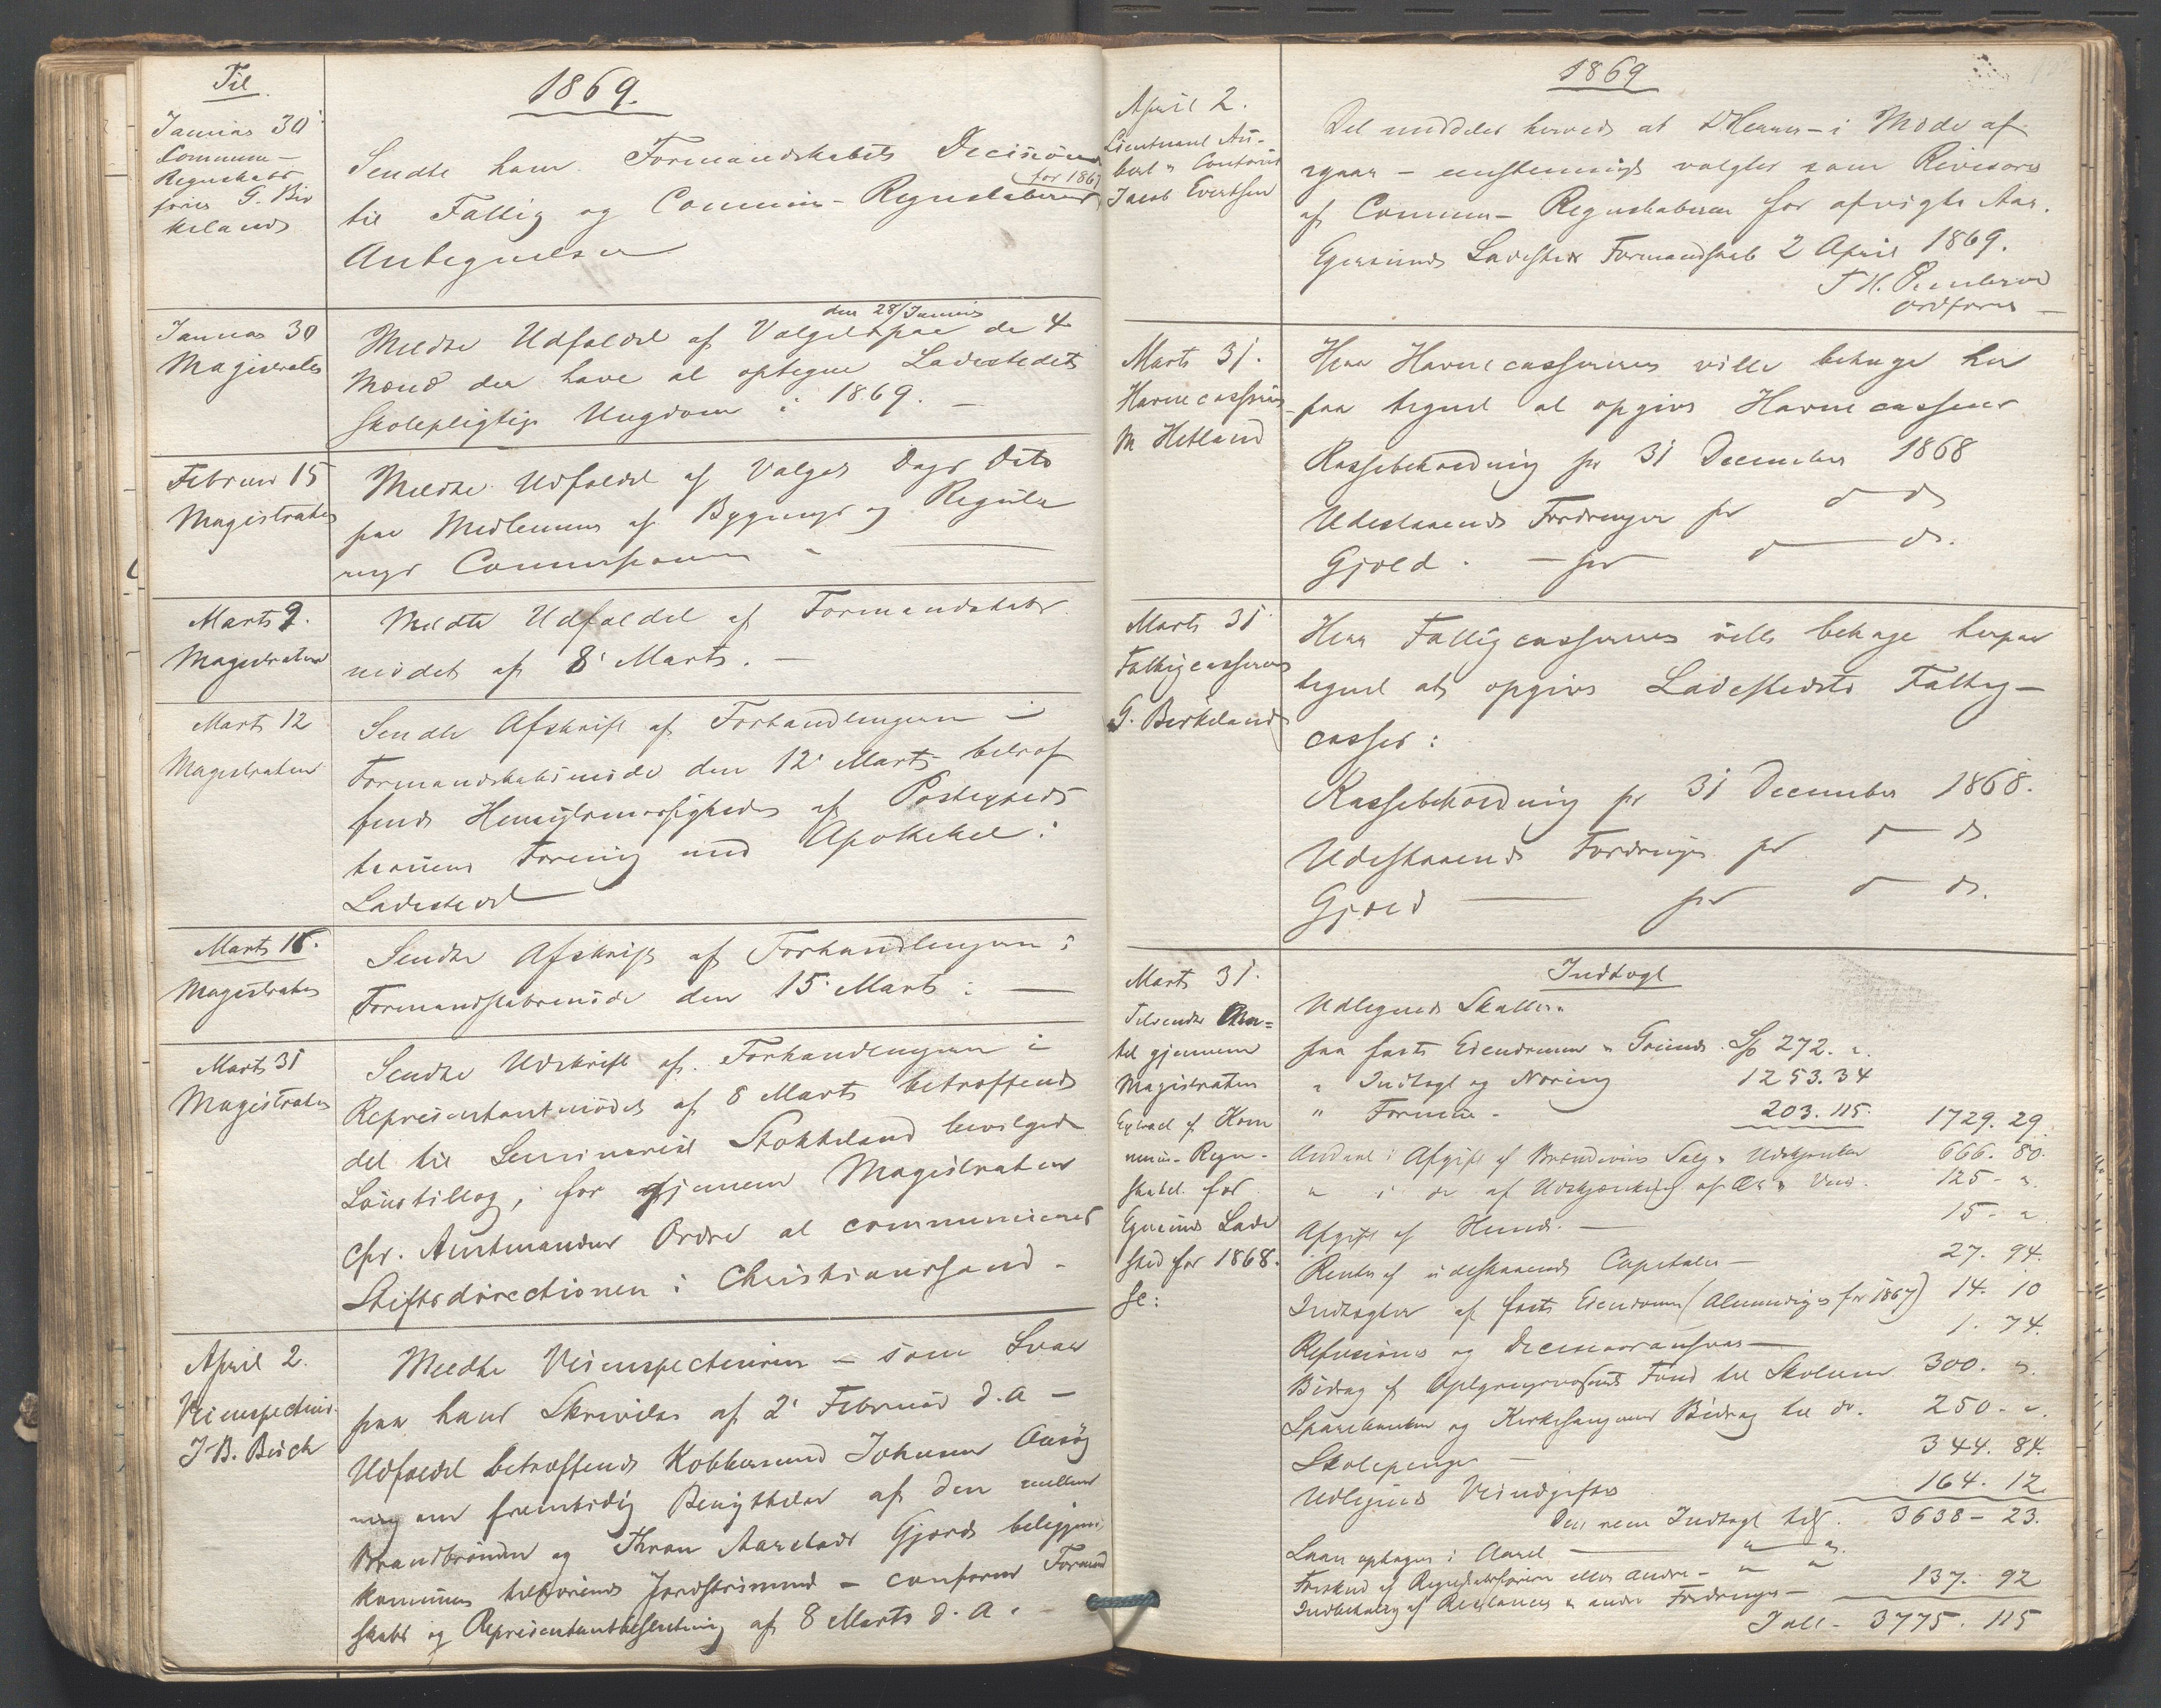 Til
1869.
Januar 30
Commune-
Regnskabs
fører G. Bir
keland
Sendte ham Formandskabets Decisioner
for 1867
til Fattig og Commune-Regnskabernes
Antegnelser
Januar 30
Magistraten
den 28/Januar
Meldte Udfaldet af Valget paa de 4
Mænd der have at optegne Ladestedets
skolepligtige Ungdom i 1869. —
Februar 15
Magistraten
Meldte Udfaldet af Valget Dags Dato
paa Medlemmer af Bygnings og Regule
rings Commissionen
Marts 9.
Magistraten
Meldte Udfaldet af Formandskabs
mødet af 8 Marts. —
Marts 12
Magistraten
Sendte Afskrift af Forhandlingerne i
Formandskabsmøde den 12 Marts betræf
fende Hensigtsmæssigheden af Postexpedi
tionens Forening med Apotheket i
Ladestedet
Marts 16.
Magistraten
Sendte Afskrift af Forhandlingerne i
Formandskabsmøde den 15 Marts. —
Marts 31
Magistraten
Sendte Udskrift af Forhandlingerne i
Representantmødet af 8 Marts betræffende
det til Seminarist Stokkeland bevilgede
Lønstillæg, for gjennem Magistraten
cfr. Amtmandens Ordre at communiceres
Stiftsdirectionen i Christianssand.
April 2.
Veiinspecteur
J. B. Birch
Meldte Veiinspecteuren – som Svar
paa hans Skrivelse af 2 Februar d. A –
Udfaldet betræffende Kobbersmed Johnsens Ansøg
ning om fremtidig Benyttelse af den mellem
Brandbrønden og Thron Aarstads Gjerde beliggende
Kommunen tilhørende Jordstrimmel – conform Formand
skabs og Representantbeslutning af 8 Marts d. A.
1869
April 2.
Lieutnant Au-
bert & Contorist
Jacob Evertsen
Det meddeles herved at D'Herrer – i Møde af
igaar – enstemmigt valgtes som Revisorer
af Commune-Regnskaberne for afvigte Aar.
Egersunds Ladesteds Formandskab 2 April 1869.
T H.
Ordfører
Marts 31.
Havnecasserer
M Hetland
Herr Havnecassereren ville behage her
paa tegnet at opgive Havnecassens
Kassebeholdning pr 31 December 1868
Udestaaende Fordringer pr d d
Gjæld. — pr d d.
Marts 31
Fattigcasserer
G. Birkeland
Herr Fattigcassereren ville behage herpaa
tegnet at opgive Ladestedets Fattig-
casses:
Kassebeholdning pr 31 December 1868.
Udestaaende Fordringer pr d d
Gjæld — pr d d.
Marts 31.
Tilsendte Am-
tet gjennem
Magistraten
Extract af Kom
mune-Regn-
skabet for
Egersunds Lade
sted for 1868.
Sc:
Indtægt
Udlignede Skatter.
paa faste Eiendomme & Grunde. Sp 272. ".
" Indtægt og Næring 1253. 34
" Formue. 203. 115. 1729. 29.
Andel i Afgift af Brændevins Salg & Udskjænken 666. 80.
" i do af Udskjænkning af Øl & Viin. 125 - ".
Afgift af Hunde. — 15 - "
Renter af udestaaende Capitaler — 27. 94.
Indtægter af faste Eiendomme (Almindinger for 1867) 14. 10
Refusioner og Decisionsansvar — 1. 74.
Bidrag af Oplysningsvæsenets Fond til Skolerne 300. ".
Sparebanken og Kirkesangerens Bidrag til do. 250 - ".
Skolepenge — 344. 84.
Udlignede Veiudgifter 164. 12.
Den rene Indtægt 3638 - 23.
Laan optaget i Aaret — " "
Forskud af Regnskabsføreren eller andre - " "
Indbetaling af Restancer & andre Fordringer — 137. 92
Jalt - 3775. 115